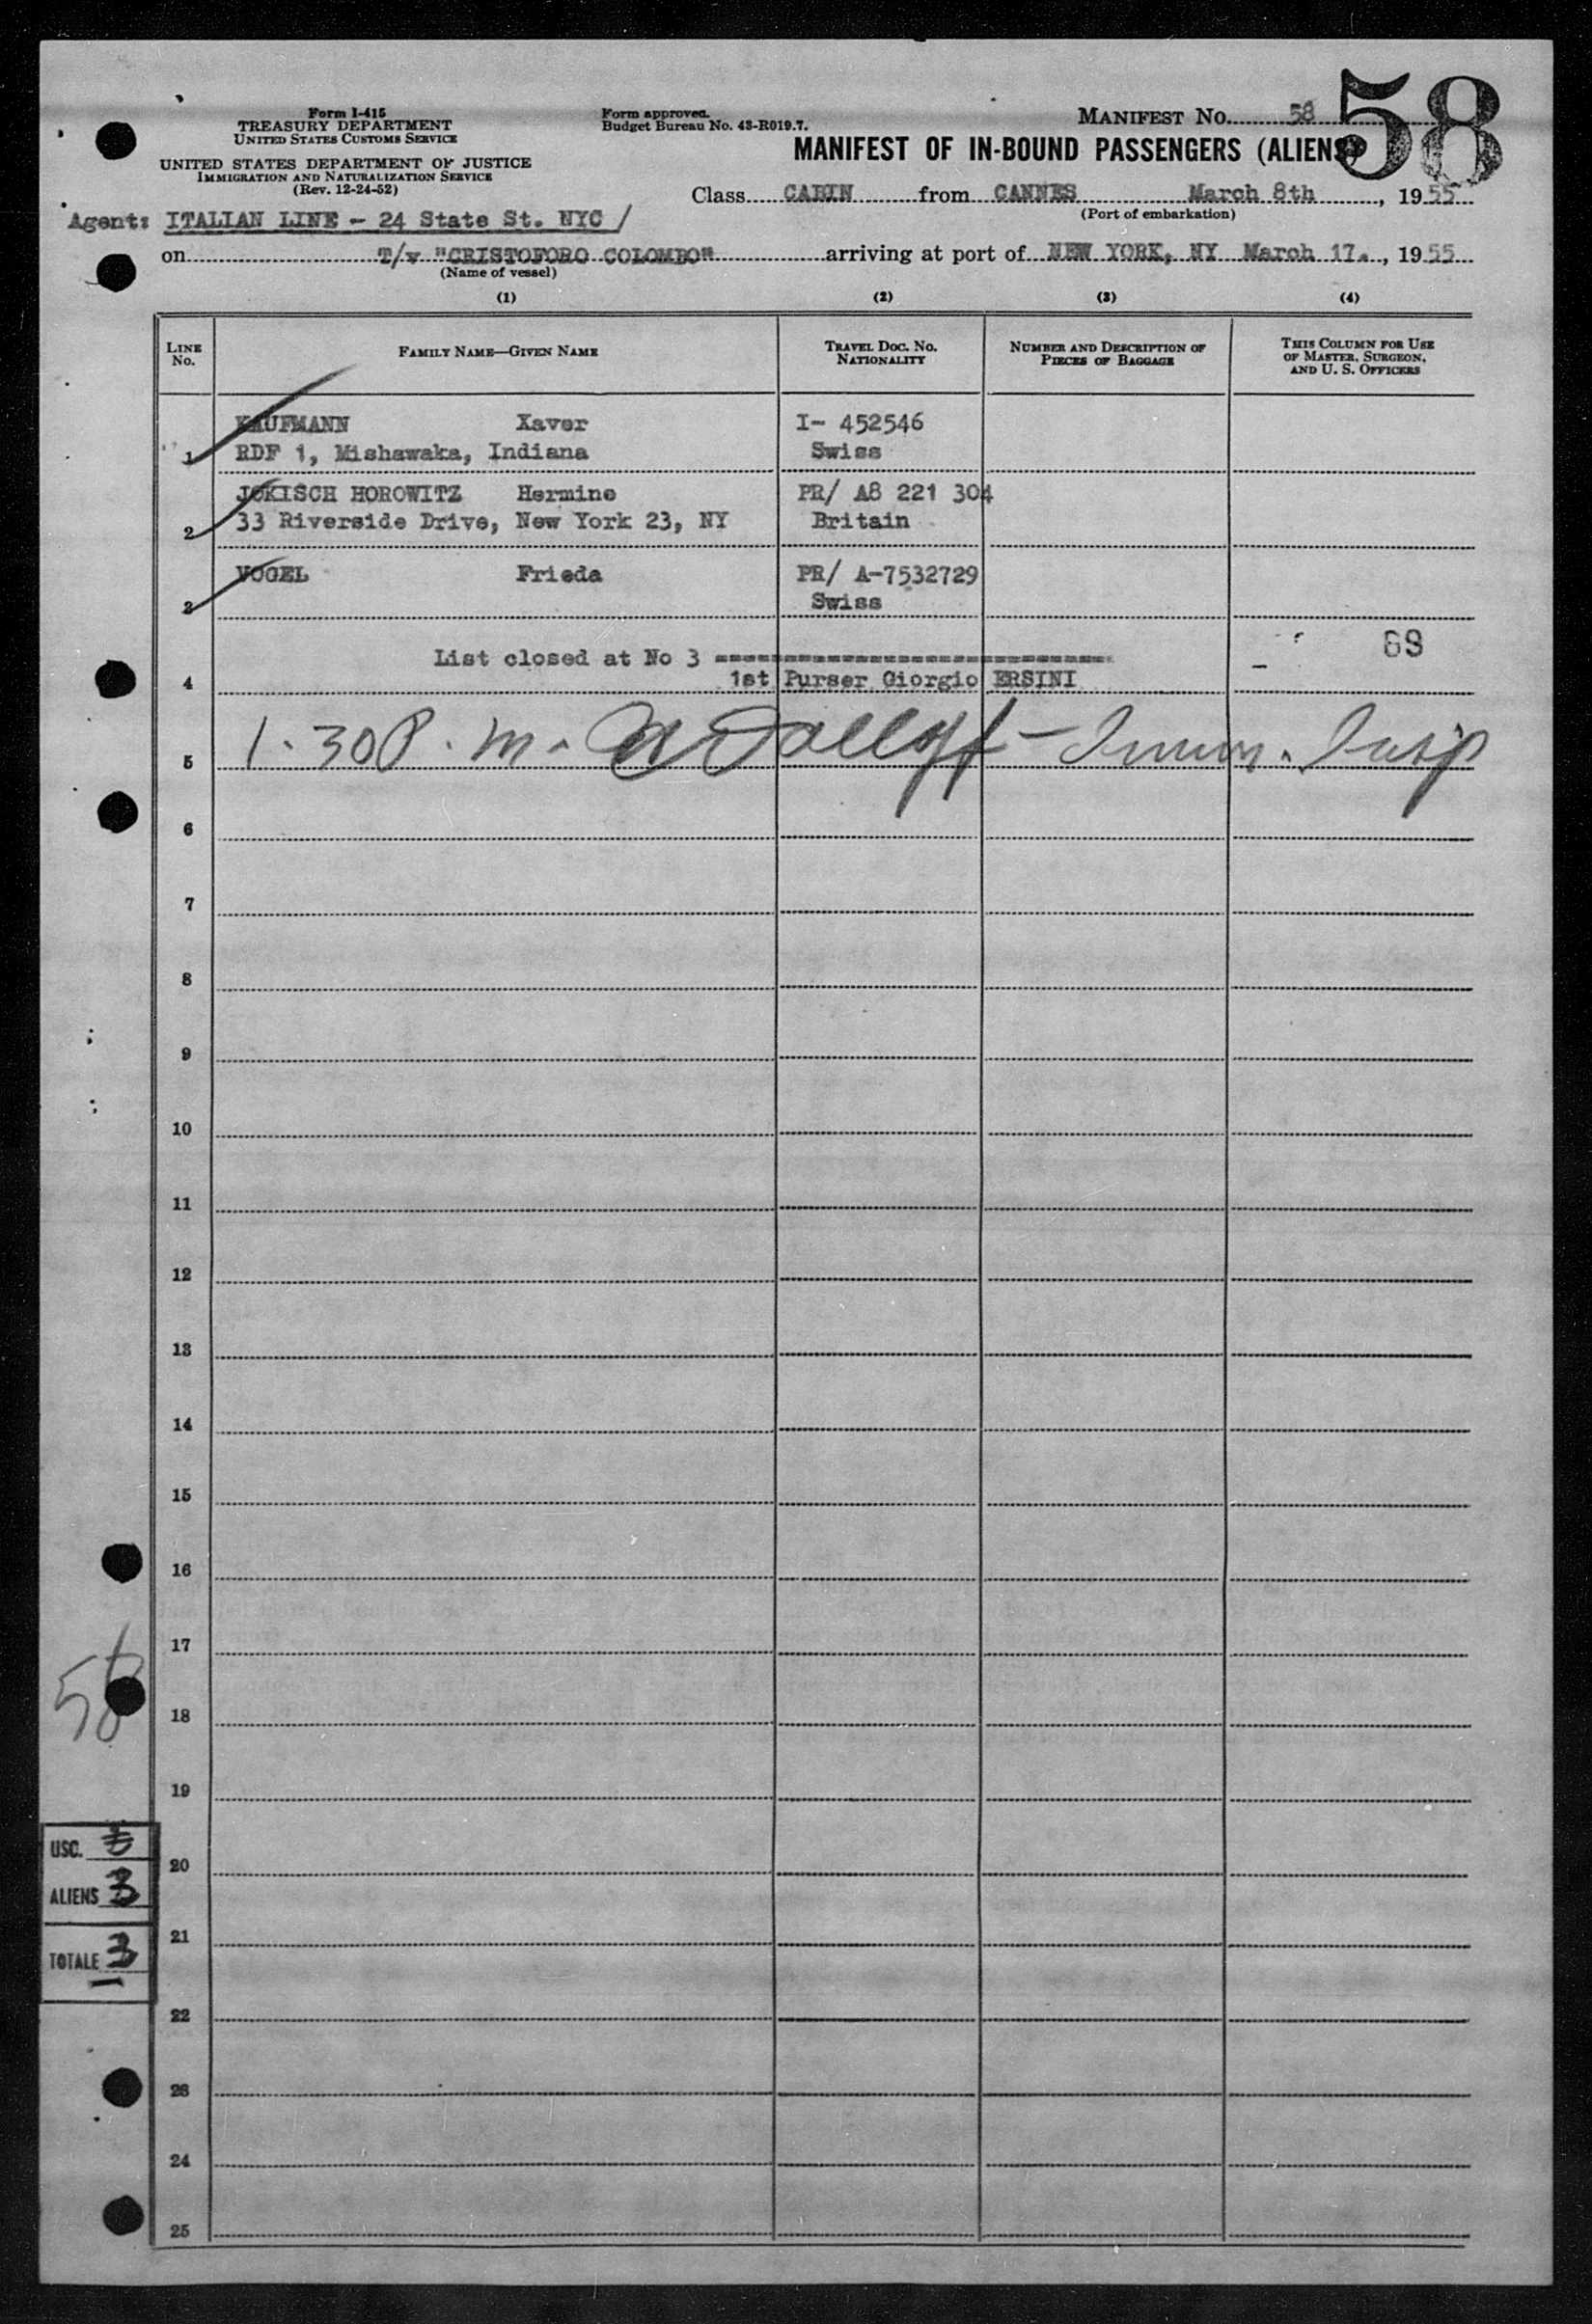 58
Form I-415
TREASURY DEPARTMENT
UNITED STATES CUSTOMS SERVICE
UNITED STATES DEPARTMENT OF JUSTICE
IMMIGRATION AND NATURALIZATION SERVICE
(Rev. 12-24-52)
Form approved.
Budget Bureau No. 43-R019.7.
MANIFEST NO. 58
MANIFEST OF IN-BOUND PASSENGERS (ALIENS)
Class CABIN from CANNES March 8th, 1955
(Port of embarkation)
Agent: ITALIAN LINE - 24 State St. NYC /
on T/v "CRISTOFORO COLOMBO" arriving at port of NEW YORK, NY March 17., 1955
(Name of vessel)
(1) (2) (3) (4)
LINE NO. FAMILY NAME—GIVEN NAME TRAVEL DOC. NO. NATIONALITY NUMBER AND DESCRIPTION OF PIECES OF BAGGAGE THIS COLUMN FOR USE OF MASTER, SURGEON, AND U. S. OFFICERS
KAUFMANN Xaver I- 452546
1 RDF 1, Mishawaka, Indiana Swiss
JOKISCH HOROWITZ Hermine PR/ A8 221 304
2 33 Riverside Drive, New York 23, NY Britain
VOGEL Frieda PR/ A-7532729
3 Swiss
List closed at No 3 69
4 1st Purser Giorgio ERSINI
5 1.30 P.m. Imm. Insp
6
7
8
9
10
11
12
13
14
15
16
17
58
18
19
USC.
20
ALIENS 3
21
TOTALE 3
22
23
24
25